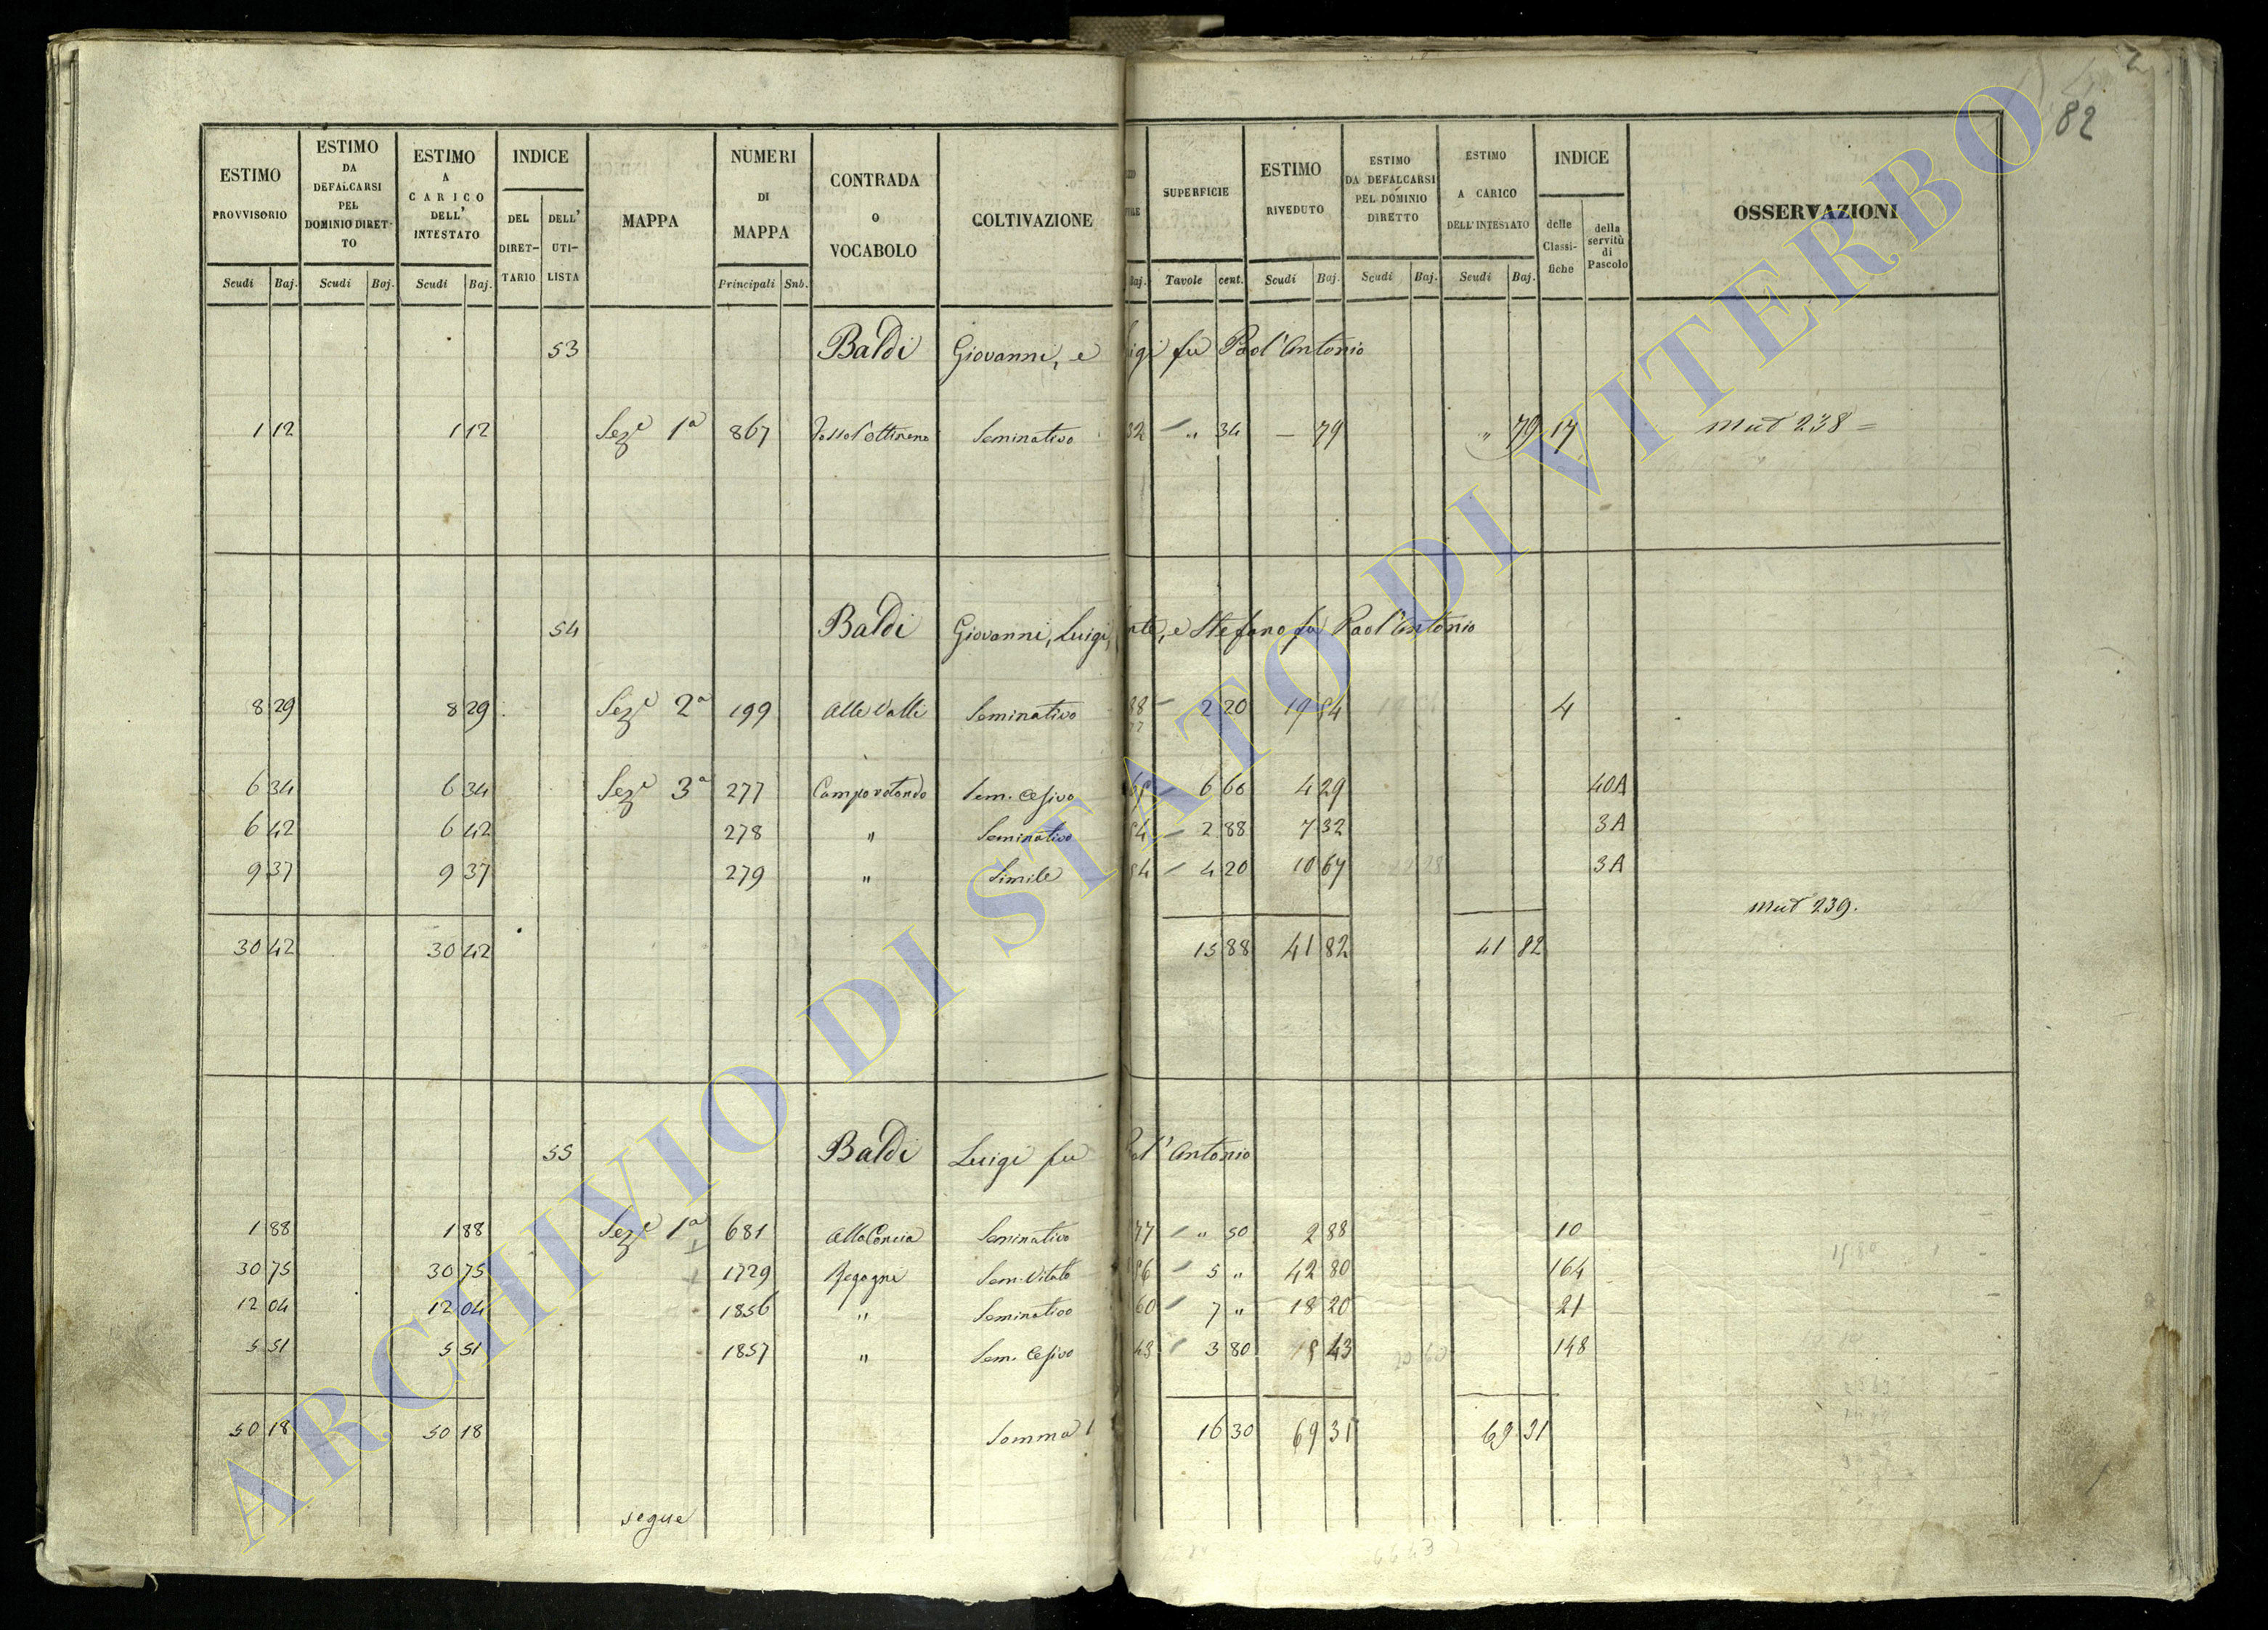 2
82
ESTIMO PROVVISORIO | ESTIMO DA DEFALCARSI PEL DOMINIO DIRETTO | ESTIMO A CARICO DELL' INTESTATO | INDICE | MAPPA | NUMERI DI MAPPA | CONTRADA O VOCABOLO | COLTIVAZIONE | SUPERFICIE | ESTIMO RIVEDUTO | ESTIMO DA DEFALCARSI PEL DOMINIO DIRETTO | ESTIMO A CARICO DELL' INTESTATO | INDICE | OSSERVAZIONI
DEL DIRETTARIO | DELL' UTILISTA | delle Classifiche | della servitù di Pascolo
Scudi | Baj. | Scudi | Baj. | Scudi | Baj. | Principali | Sub. | Baj. | Tavole | cent. | Scudi | Baj. | Scudi | Baj. | Scudi | Baj.
53 Baldi Giovanni, e igi fu Paol'Antonio
1 12 1 12 Seze 1a 867 Seminativo 32 " 34 — 79 " 79 17 Mut 238 =
54 Baldi Giovanni, Luigi, nte, e Stefano fu Paol'Antonio
8 29 8 29 Seze 2a 199 Alle Valli Seminativo 88 2 20 19 54 4
6 34 6 34 Seze 3a 277 Campo rotondo Sem. Cesivo 65 6 60 4 29 40A
6 42 6 42 278 " Seminativo 54 2 88 7 32 3A
9 37 9 37 279 " Simile 54 4 20 10 67 3A
Mut 239.
30 42 30 42 15 88 41 82 41 82
55 Baldi Luigi fu ol'Antonio
1 88 1 88 Seze 1a 681 Alla Concia Seminativo 77 " 50 2 88 10
30 75 30 75 1729 Regagni Sem. Vitato 56 5 " 42 80 164
12 04 12 04 1856 " Seminativo 60 7 " 18 20 21
5 51 5 51 1857 " Sem. Cesivo 43 3 80 5 43 148
50 18 50 18 Somma 16 30 69 31 69 31
segue
ARCHIVIO DI STATO DI VITERBO